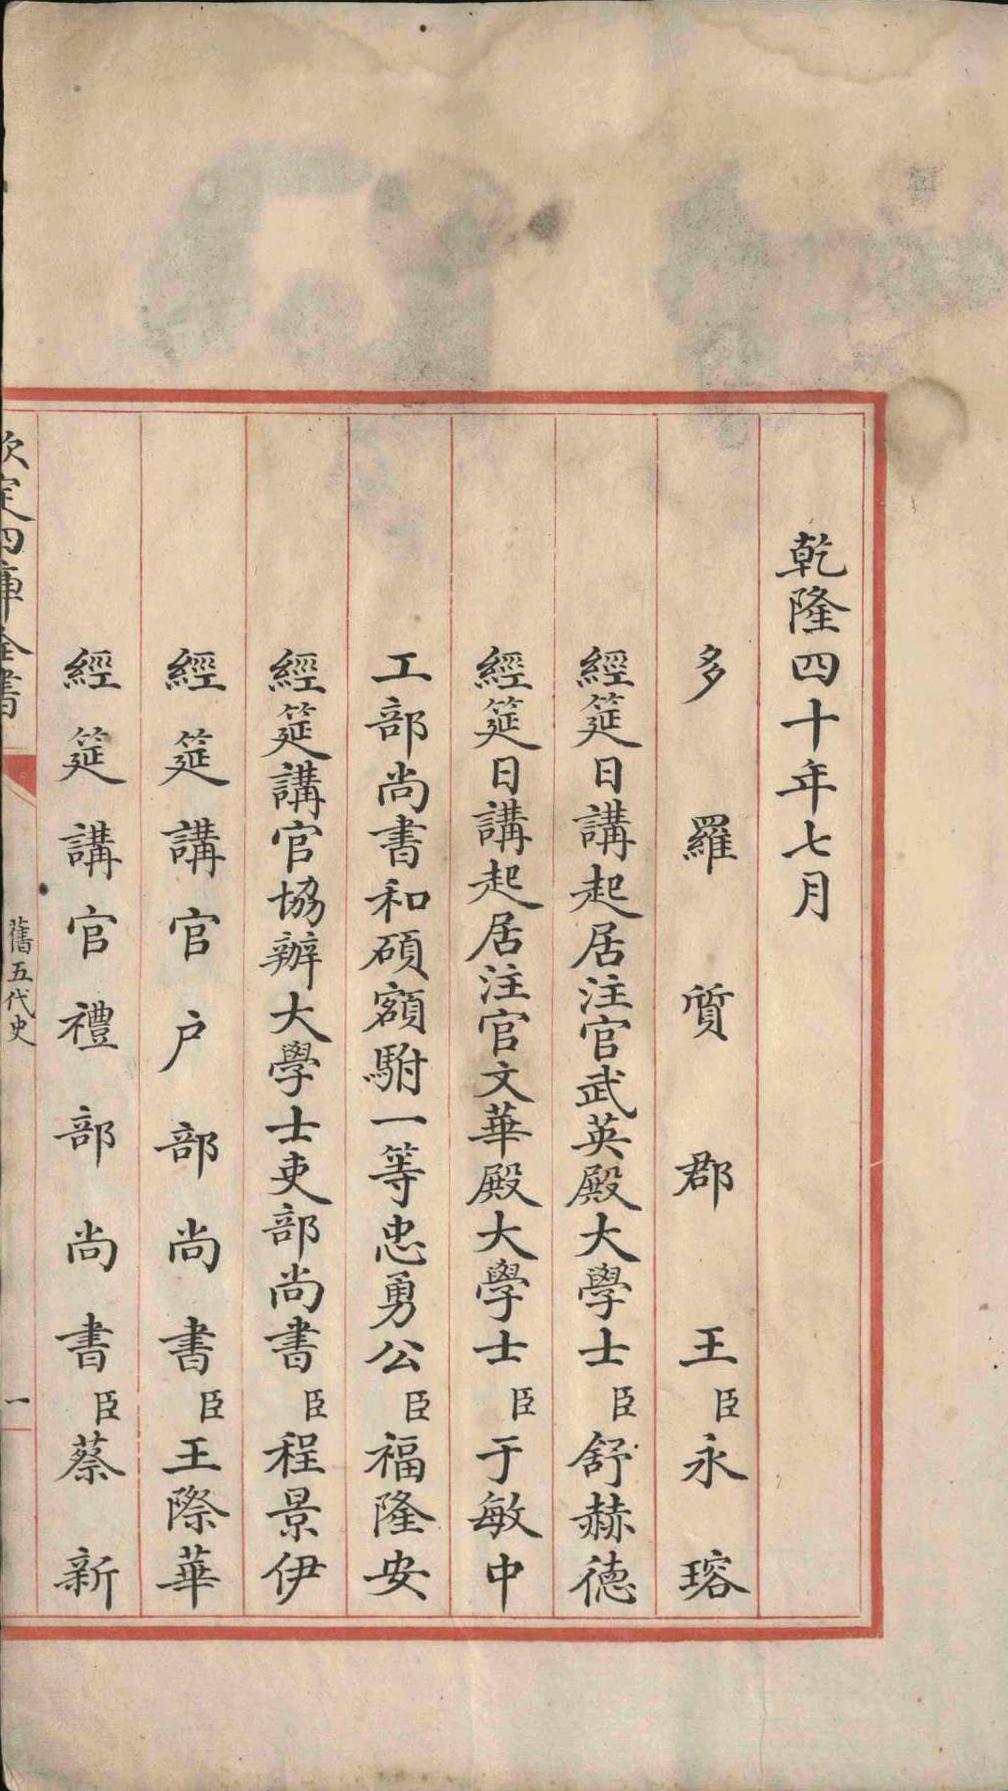 乾隆四十年七月
多羅質郡王臣永瑢
經筵日講起居注官武英殿大學士臣舒赫德
經筵日講起居注官文華殿大學士臣于敏中
工部尚書和碩額駙一等忠勇公臣福隆安
經筵講官協辦大學士吏部尚書臣程景伊
經筵講官户部尚書臣王際華
經筵講官禮部尚書臣蔡新
欽定四庫全書
舊五代史
一